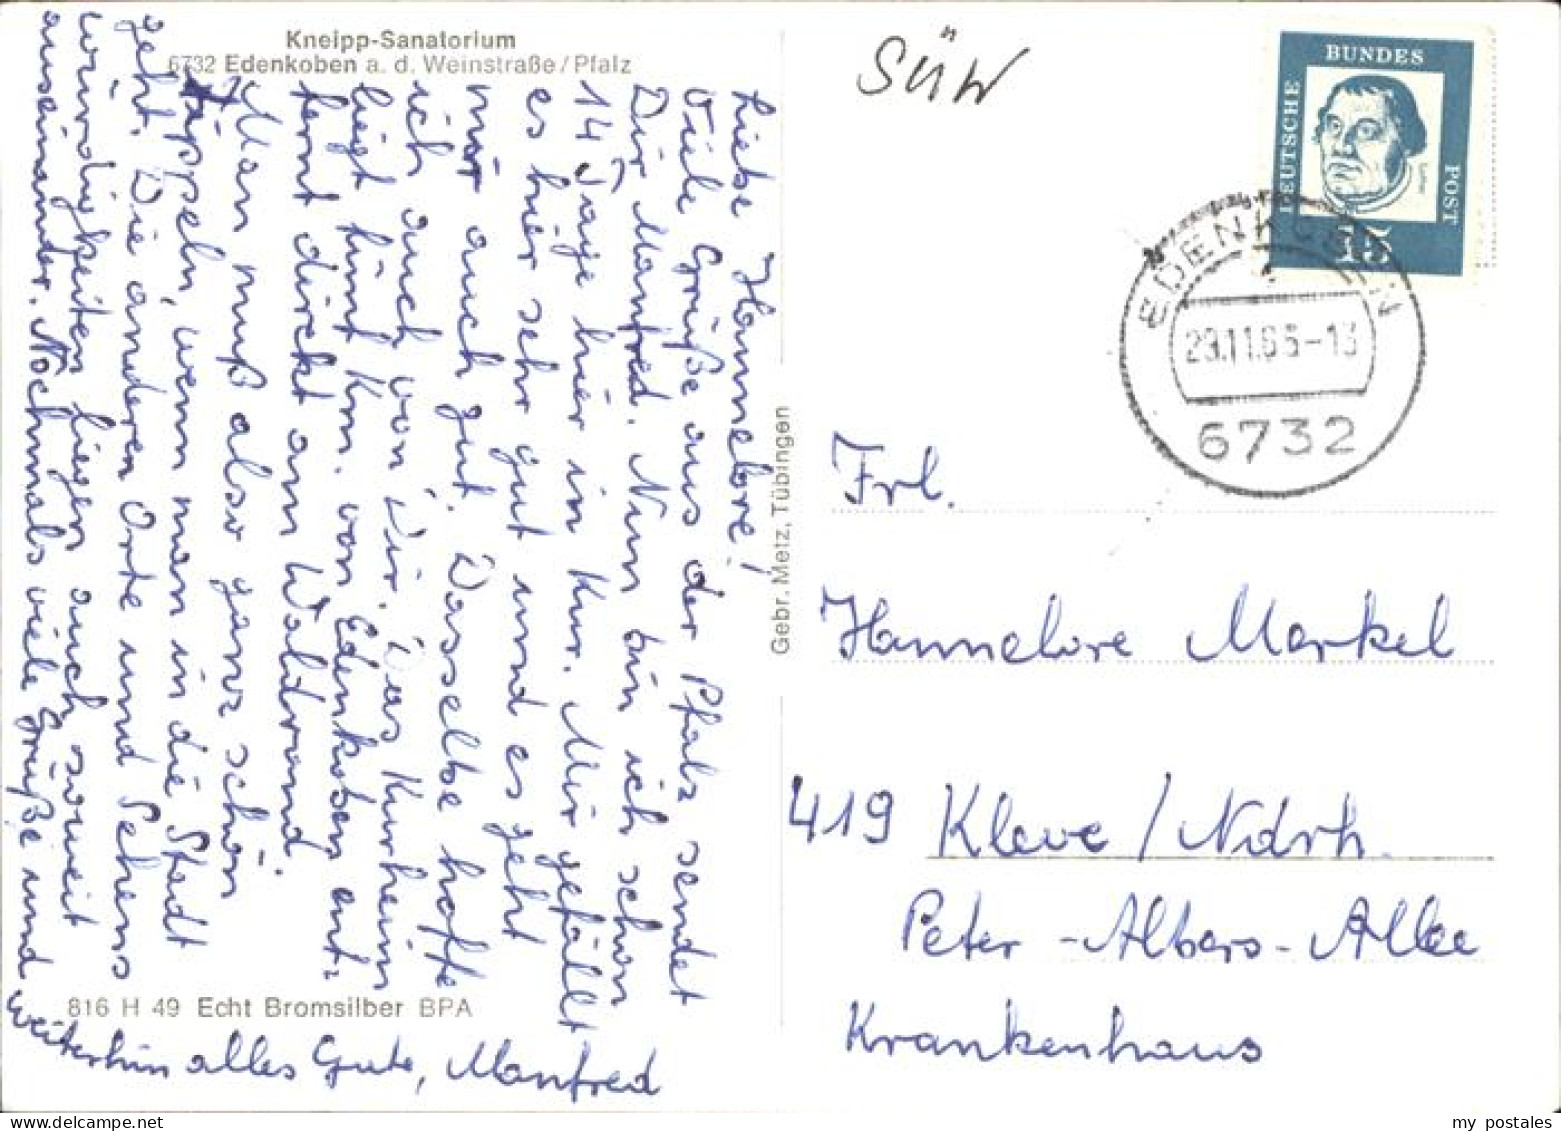 Kneipp-Sanatorium
6732 Edenkoben a. d. Weinstraße/Pfalz
Liebe Hannelore!
Viele Grüße aus der Pfalz sendet
Dir Manfred. Nun bin ich schon
14 Tage hier in Kur. Mir gefällt
es hier sehr gut und es geht
mir auch gut. Dasselbe hoffe
ich auch von Dir. Das Kurheim
liegt fünf Km. von Edenkoben ent-
fernt direkt am Waldrand.
Man muß also ganz schön
tippeln, wenn man in die Stadt
geht. Die anderen Orte und Sehens
würdigkeiten liegen auch soweit
auseinander. Nochmals viele Grüße und
weiterhin alles Gute, Manfred
816 H 49 Echt Bromsilber BPA
Gebr. Metz, Tübingen
SÜW
DEUTSCHE
BUNDES
POST
Luther
15
EDENKOBEN
29.11.65-13
6732
Frl.
Hannelore Markel
419 Kleve / Ndrh.
Peter-Albers-Allee
Krankenhaus
my postales